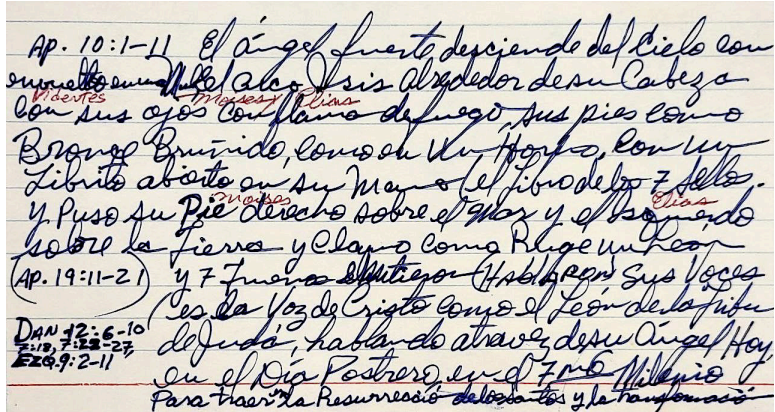 AP. 10:1-11 El ángel fuerte desciende del Cielo con
envuelto en una Nube el arco Isis alrededor de su Cabeza
Videntes Moises y Elias
con sus ojos como flama de fuego, sus pies como
Bronce Bruñido, como en un Horno, con un
Librito abierto en su Mano (el libro de los 7 sellos.
Moises Elias
y Puso su Pie derecho sobre el Mar y el Isquierdo
sobre la Tierra y Clamo como Ruge un León
(AP. 19:11-21) y 7 Truenos emitieron (HABLARON) Sus Voces
(es la Voz de Cristo como el León de la Tribu
DAN 12:6-10 de Judá, hablando atravez de su Ángel Hoy
7:18, 7:22-27,
EZQ. 9:2-11
en el Día Postrero, en el 7mo Milenio
Para traer la Resurressió de los santos y la transformasión